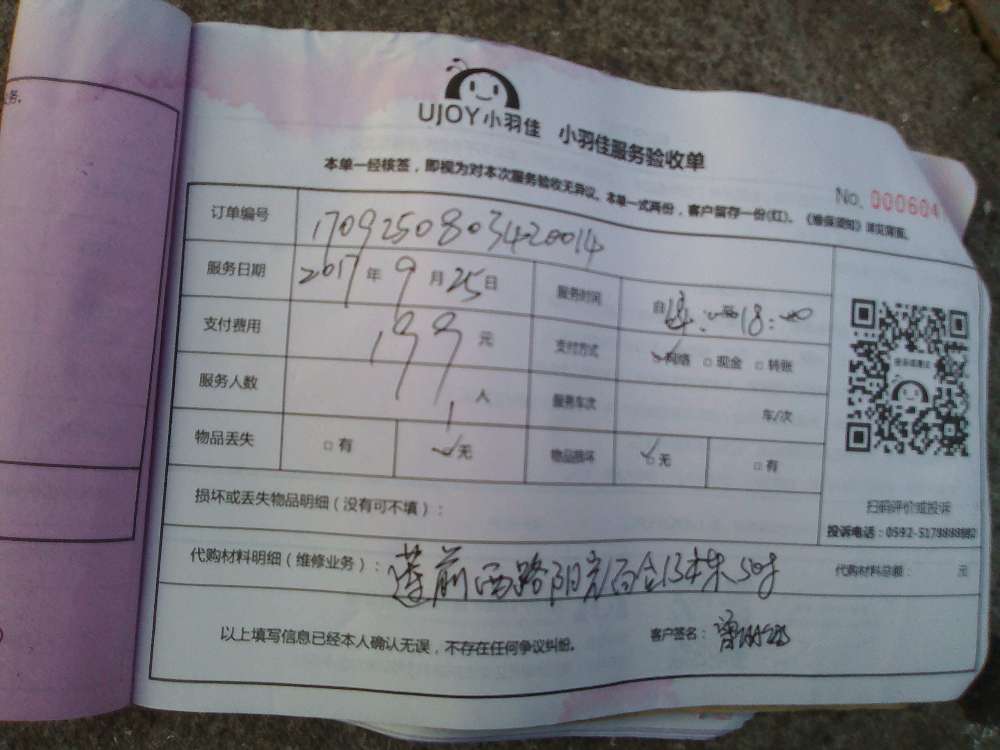 务。
UJOY小羽佳 小羽佳服务验收单
本单一经核签，即视为对本次服务验收无异议。本单一式两份，客户留存一份(红)。《维保须知》详见背面。
No. 000604
订单编号 1709250803420014
服务日期 2017年9月25日 服务时间 自14: 至18:00
支付费用 199元 支付方式 ☑网络 □现金 □转账
服务人数 1人 服务车次 车/次
物品丢失 □有 ☑无 物品损坏 ☑无 □有
扫码评价或投诉
损坏或丢失物品明细（没有可不填）：
投诉电话：0592-5178888
代购材料明细（维修业务）：莲前西路阳光百合 代购材料总额： 元
以上填写信息已经本人确认无误，不存在任何争议纠纷。 客户签名：